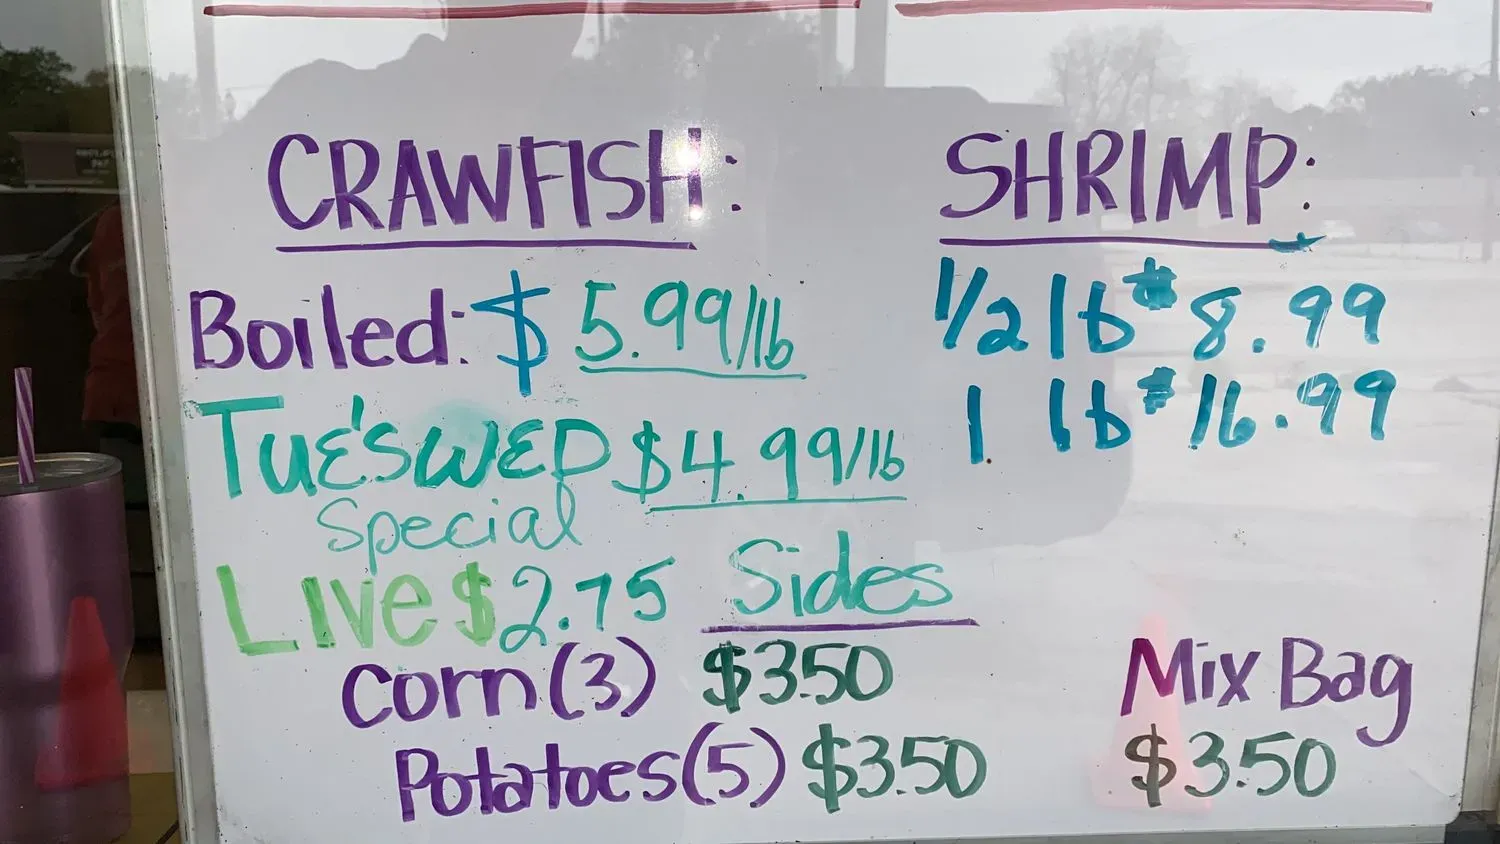 CRAWFISH:
Boiled: $5.99/lb
TUE'S WED $4.99/lb
Special
LIVE $2.75
Sides
Corn (3) $3.50
Potatoes (5) $3.50
SHRIMP:
1/2 lb $8.99
1 lb $16.99
Mix Bag
$3.50